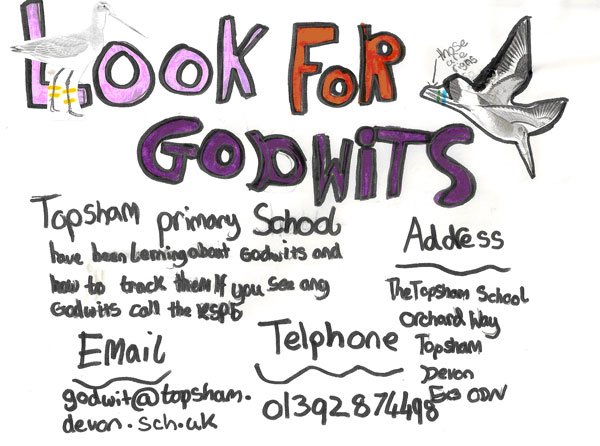 LOOK FOR
those
are
GODWiTS
Topsham primary School
have been lerning about Godwits and
how to track them If you see any
Godwits call the RSPB
EMail
godwit@topsham.
devon.sch.uk
Telphone
01392874498
Address
The Topsham School
Orchard Way
Topsham
Devon
Ex3 ODN